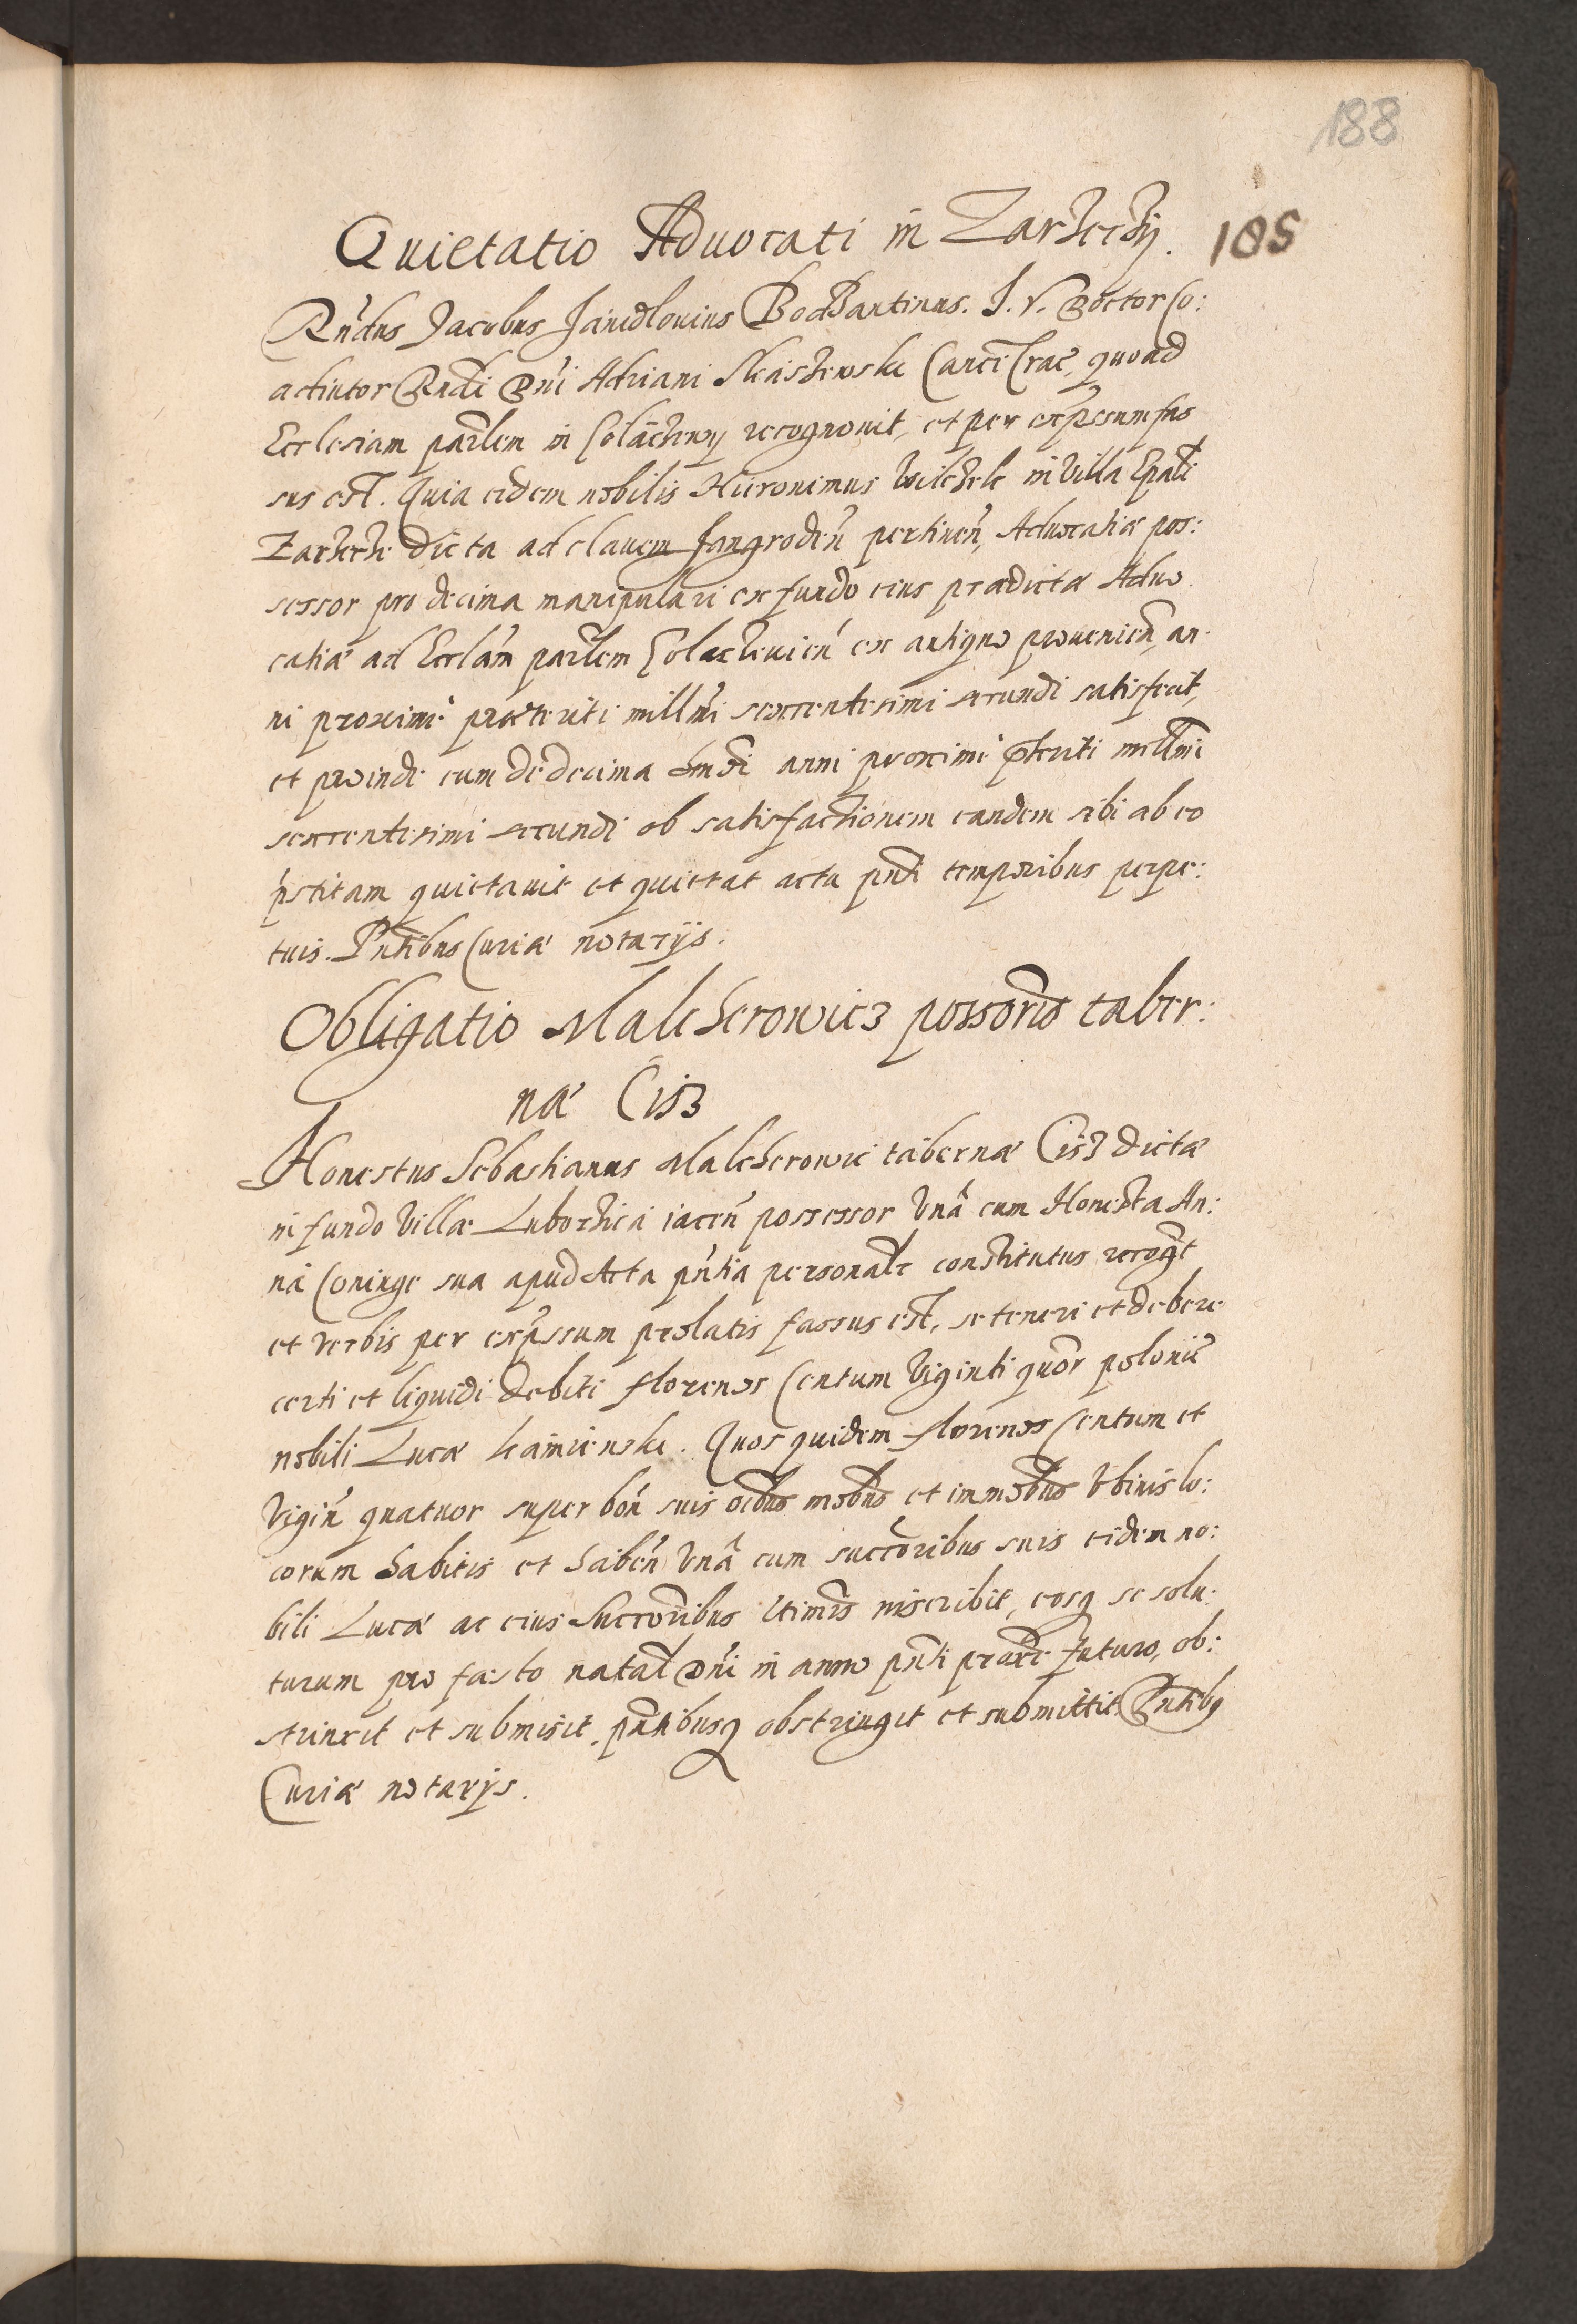 188
Quietatio Advocati in Zarzecży. 185
Rńdus Jacobus Janidlovius Bodzantinus. I. V. Doctor Co:
adiutor Rndi Dńi Adriani Skaszewski Canci Crac, quoad
Ecclesiam parlem in Colaczewy recognouit, et per expssum fas
sus est. Quia eidem nobilis Hieronimus Wilczek in Villa Epali
Zarzecze dicta ad clauem Jangroden pertinen, Aduocatiæ pos:
sessor pro decima manipulari ex fundo eius prædictæ Aduo
catiæ ad Ecclam parlem Colaczevień ex antiquo provenien, an
ni proximè præteriti millmi sexcentesimi secundi satisfecit,
et proinde eum de decima hmdi anni proximi pteriti millmi
sexcentesimi secundi ob satisfactionem eandem sibi ab eo
pstitam quietauit et quietat actu pnti temporibus perpe:
tuis. Pntibus Curiæ notarijs.
Obligatio Malcherowicz possoris taber:
næ Cisz
Honestus Sebastianus Malcherowic tabernæ Cisz dictæ
in fundo Villæ Luborzica iacen possessor Vnâ cum Honesta An:
na Coniuge sua apud Acta pntia personalr constitutus recogt
et verbis per expssum prolatis fassus est, se teneri et debere
certi et liquidi debiti florenos Centum Viginti quor polonic
nobili Lucæ Kamienski. Quos quidem florenos Centum et
Vigin quatuor super bon suis oibus mobbus et immobbus Vbiuis lo:
corum habitis et haben Vnâ cum succoribus suis eidem no:
bili Lucæ ac eius Succoribus ltimis inscribit, eosq se solu
turum pro festo natal Dni in anno pnti proxe futuro, ob:
strinxit et submisit, pntibusq obstringit et submittit Pntibq
Curiæ notarijs.